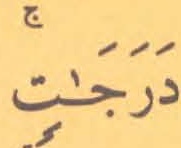 دَرَجَٰتٍۚ